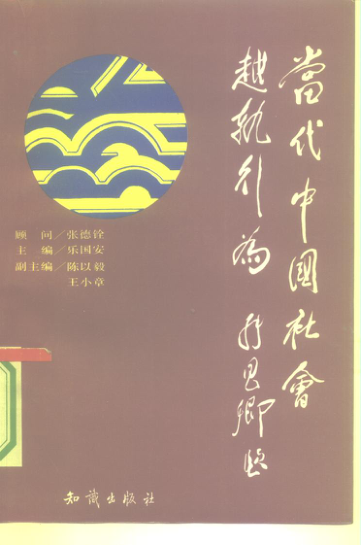 當代中國社會
越軌行為
顾　问／张德铨
主　编／乐国安
副主编／陈以毅
王小章
知識出版社